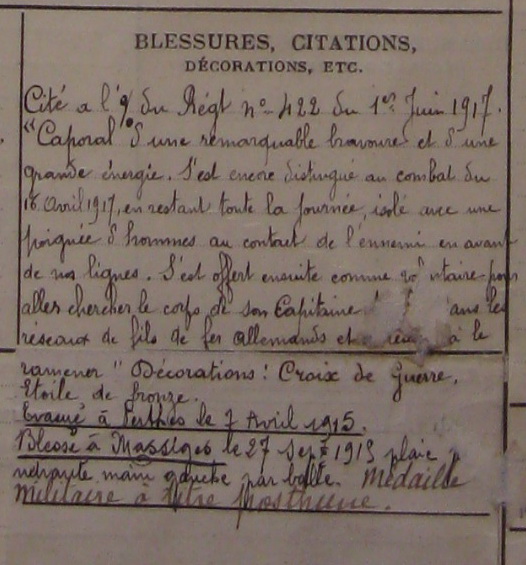 BLESSURES, CITATIONS,
DÉCORATIONS, ETC.
Cité a l'o/ du Régt n° 422 du 1er Juin 1917.
"Caporal d'une remarquable bravoure et d'une
grande énergie. S'est encore distingué au combat du
16 Avril 1917, en restant toute la journée, isolé avec une
poignée d'hommes au contact de l'ennemi en avant
de nos lignes. S'est offert ensuite comme vo taire pour
aller chercher le corps de son Capitaine ans les
réseaux de fils de fer allemands et à le
ramener" Décorations: Croix de Guerre.
Etoile de bronze.
Evacué à Perthes le 7 Avril 1915.
Blessé à Massiges le 27 Sept 1915 plaie
main gauche par balle. Médaille
Militaire à titre posthume.